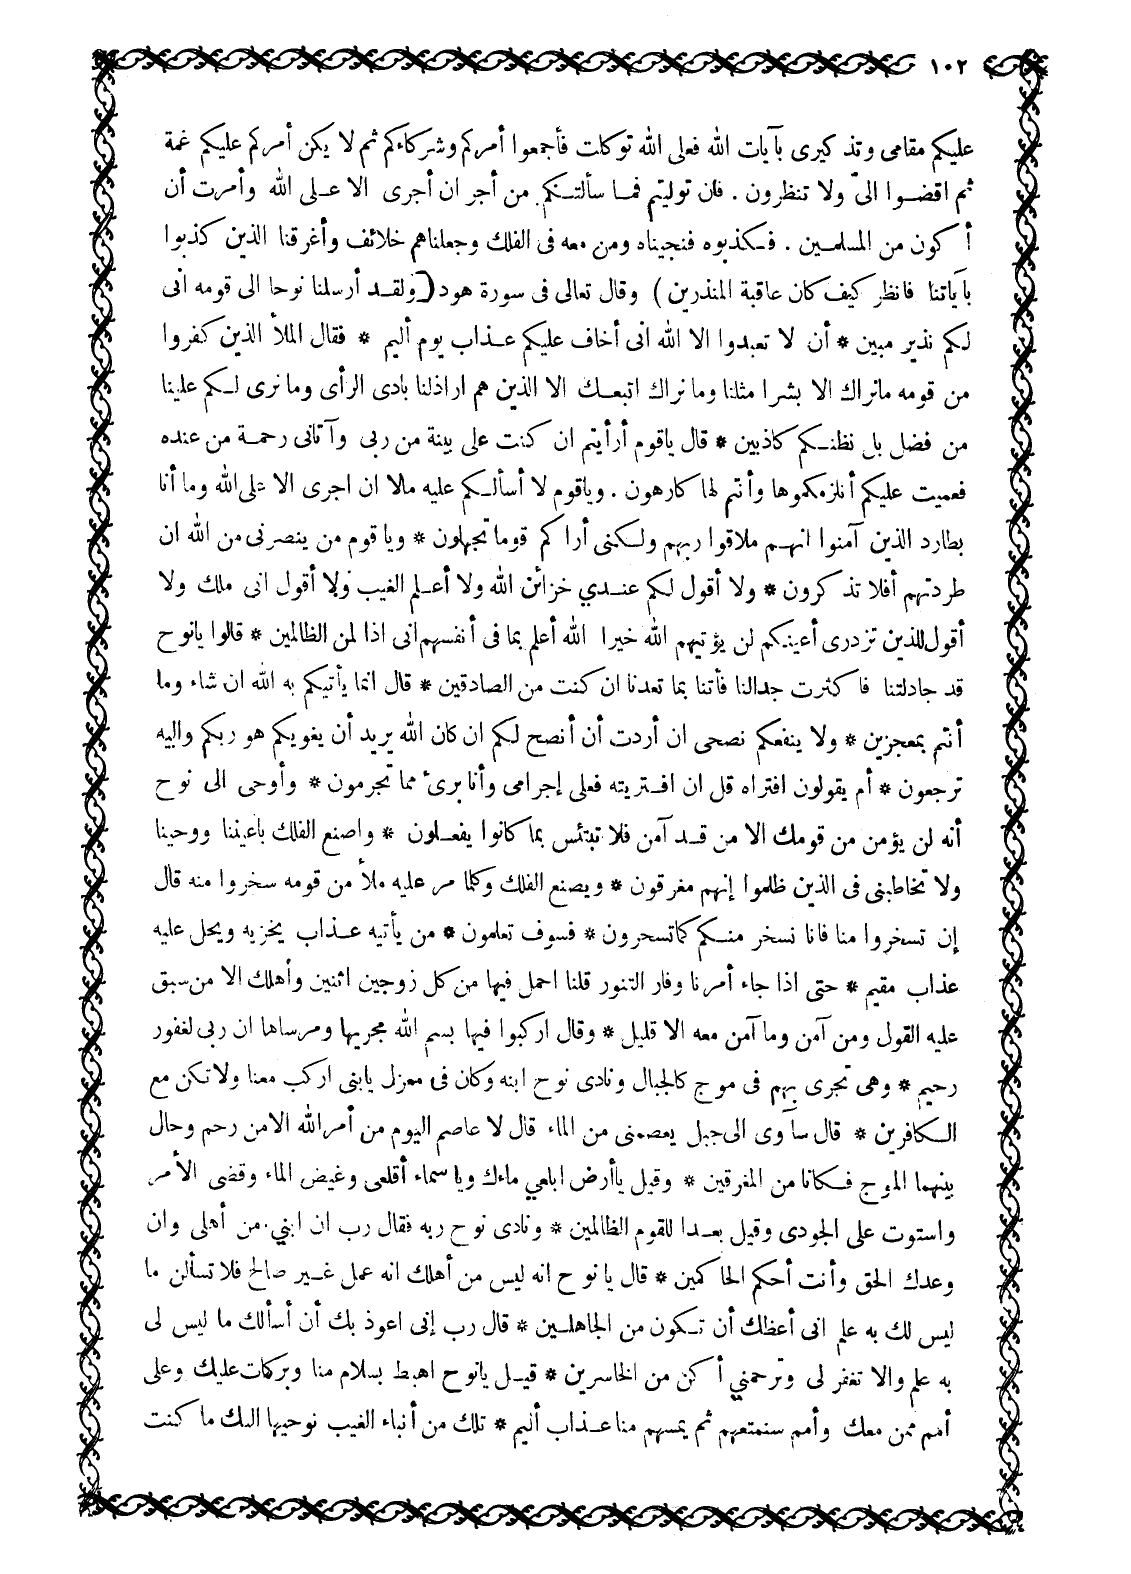 ١٠٢
عليكم مقامى وتذكيرى بآيات الله فعلى الله توكلت فأجمعوا أمركم وشركاءكم ثم لا يكن أمركم عليكم غمة
ثم اقضوا الىّ ولا تنظرون . فان توليتم فما سألتكم من أجر ان أجرى الا على الله وأمرت أن
أكون من المسلمين . فكذبوه فنجيناه ومن معه فى الفلك وجعلناهم خلائف وأغرقنا الذين كذبوا
بآياتنا فانظر كيف كان عاقبة المنذرين ) وقال تعالى فى سورة هود ( ولقد أرسلنا نوحا الى قومه انى
لكم نذير مبين * أن لا تعبدوا الا الله انى أخاف عليكم عذاب يوم أليم * فقال الملأ الذين كفروا
من قومه مانراك الا بشرا مثلنا وما نراك اتبعك الا الذين هم اراذلنا بادى الرأى وما نرى لكم علينا
من فضل بل نظنكم كاذبين * قال ياقوم أرأيتم ان كنت على بينة من ربى وآتانى رحمة من عنده
فعميت عليكم أنلزمكموها وأنتم لها كارهون . وياقوم لا أسألكم عليه مالا ان اجرى الا على الله وما أنا
بطارد الذين آمنوا انهم ملاقوا ربهم ولكنى أراكم قوما تجهلون * ويا قوم من ينصرنى من الله ان
طردتهم أفلا تذكرون * ولا أقول لكم عندي خزائن الله ولا أعلم الغيب ولا أقول انى ملك ولا
أقول للذين تزدرى أعينكم لن يؤتيهم الله خيرا الله أعلم بما فى أنفسهم انى اذا لمن الظالمين * قالوا يانوح
قد جادلتنا فاكثرت جدالنا فأتنا بما تعدنا ان كنت من الصادقين * قال انما يأتيكم به الله ان شاء وما
أنتم بمعجزين * ولا ينفعكم نصحى ان أردت أن أنصح لكم ان كان الله يريد أن يغويكم هو ربكم واليه
ترجعون * أم يقولون افتراه قل ان افتريته فعلى إجرامى وأنا برىء مما تجرمون * وأوحى الى نوح
أنه لن يؤمن من قومك الا من قد آمن فلا تبتئس بما كانوا يفعلون * واصنع الفلك باعيننا ووحينا
ولا تخاطبنى فى الذين ظلموا إنهم مغرقون * ويصنع الفلك وكلما مر عليه ملأ من قومه سخروا منه قال
إن تسخروا منا فانا نسخر منكم كما تسخرون * فسوف تعلمون * من يأتيه عذاب يخزيه ويحل عليه
عذاب مقيم * حتى اذا جاء أمرنا وفار التنور قلنا احمل فيها من كل زوجين اثنين وأهلك الا من سبق
عليه القول ومن آمن وما آمن معه الا قليل * وقال اركبوا فيها بسم الله مجريها ومرساها ان ربى لغفور
رحيم * وهى تجرى بهم فى موج كالجبال ونادى نوح ابنه وكان فى معزل يابنى اركب معنا ولا تكن مع
الكافرين * قال سآوى الى جبل يعصمنى من الماء قال لا عاصم اليوم من أمر الله الا من رحم وحال
بينهما الموج فكانا من المغرقين * وقيل ياأرض ابلعي ماءك ويا سماء أقلعى وغيض الماء وقضى الأمر
واستوت على الجودى وقيل بعدا للقوم الظالمين * ونادى نوح ربه فقال رب ان ابني من أهلى وان
وعدك الحق وأنت أحكم الحاكمين * قال يا نوح انه ليس من أهلك انه عمل غير صالح فلا تسألن ما
ليس لك به علم انى أعظك أن تكون من الجاهلين * قال رب إنى اعوذ بك أن أسألك ما ليس لى
به علم والا تغفر لى وترحمني أكن من الخاسرين * قيل يانوح اهبط بسلام منا وبركات عليك وعلى
أمم ممن معك وأمم سنمتعهم ثم يمسهم منا عذاب أليم * تلك من أنباء الغيب نوحيها اليك ما كنت